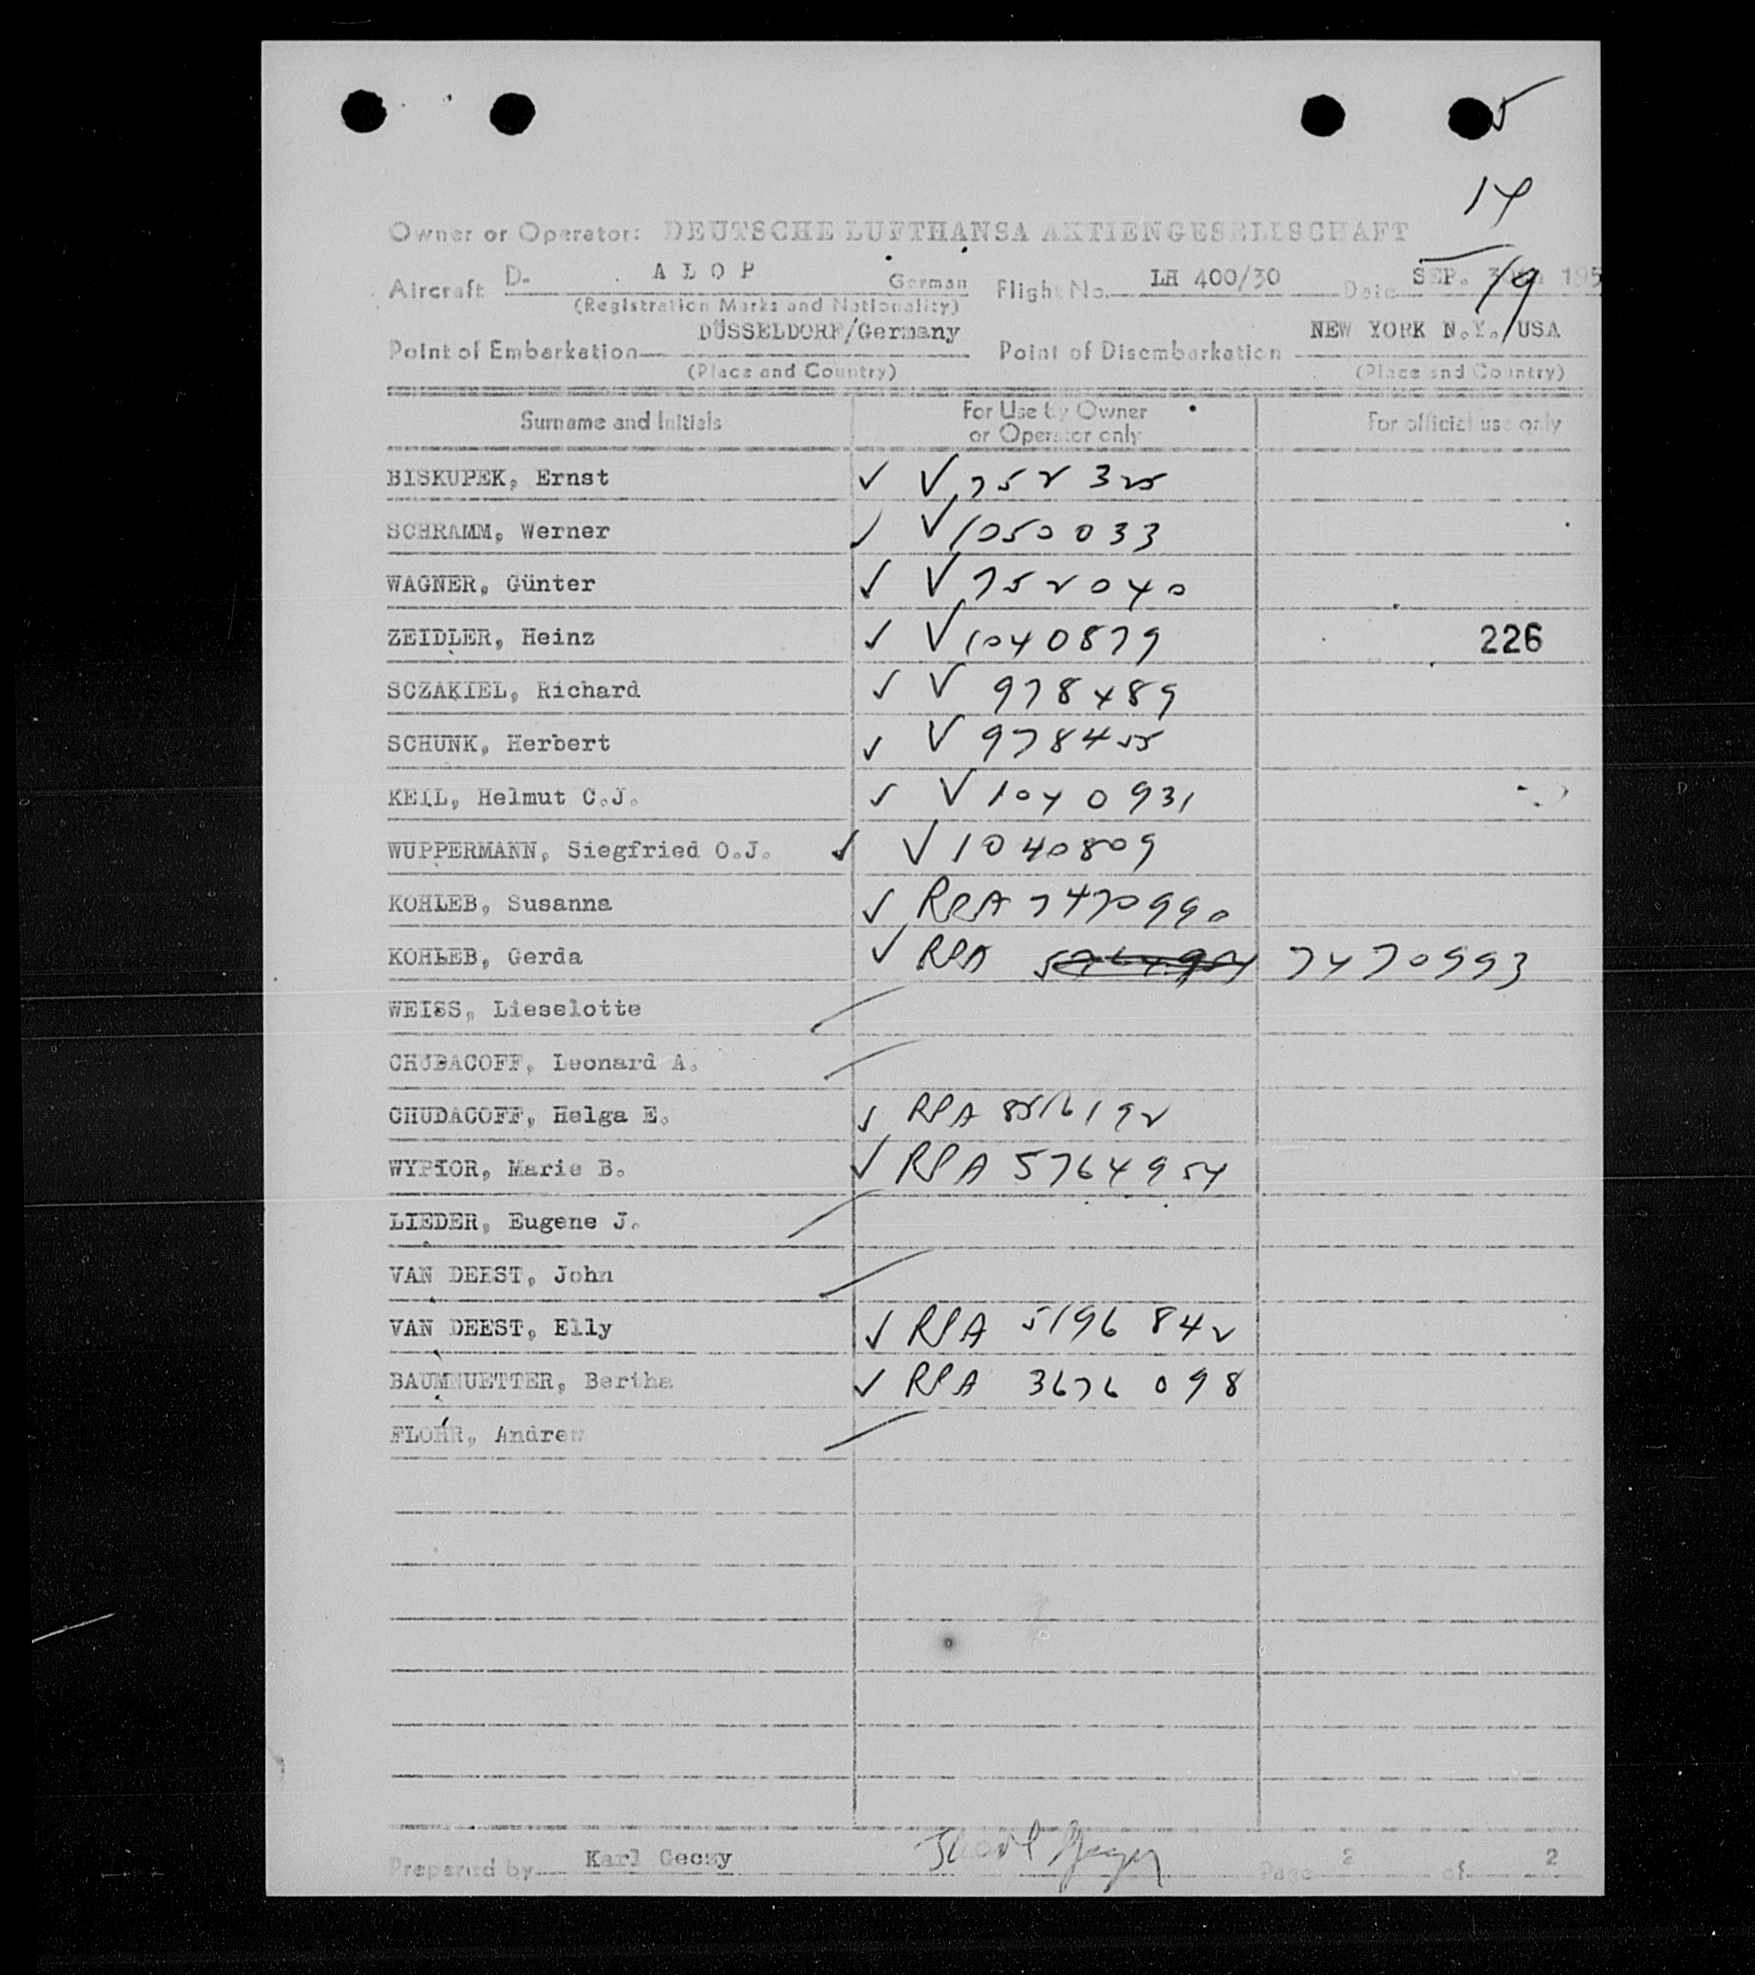 5
14
Owner or Operator: DEUTSCHE LUFTHANSA AKTIENGESELLSCHAFT
Aircraft D. A L O P German Flight No. LH 400/30 Date SEP. 195
(Registration Marks and Nationality)
Point of Embarkation DÜSSELDORF/Germany Point of Disembarkation NEW YORK N.Y./USA
(Place and Country) (Place and Country)
Surname and Initials For Use by Owner or Operator only For official use only
BISKUPEK, Ernst ✓ V 752325
SCHRAMM, Werner ✓ V 1050033
WAGNER, Günter ✓ V 752040
ZEIDLER, Heinz ✓ V 1040879 226
SCZAKIEL, Richard ✓ V 978489
SCHUNK, Herbert ✓ V 978455
KEIL, Helmut C.J. ✓ V 1040931
WUPPERMANN, Siegfried O.J. ✓ V 1040809
KOHLEB, Susanna ✓ RPA 7470990
KOHLEB, Gerda ✓ RPA 7470993
WEISS, Lieselotte
CHUDACOFF, Leonard A.
CHUDACOFF, Helga E. ✓ RPA 8516192
WYPIOR, Marie B. ✓ RPA 5764954
LIEDER, Eugene J.
VAN DEEST, John
VAN DEEST, Elly ✓ RPA 5196842
BAUMHUETTER, Bertha ✓ RPA 3676098
FLOHR, Andrew
Prepared by Karl Geczy Page 2 of 2